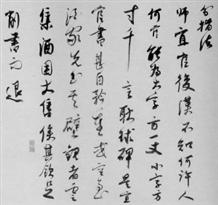 楷法
師宜官後漢不知何許人
何官能為大字方一丈小字方
寸千言耿球碑是宜
官書甚自矜重或空至
酒家先書其壁觀者雲
集酒因大售俟其飲足
削書而退